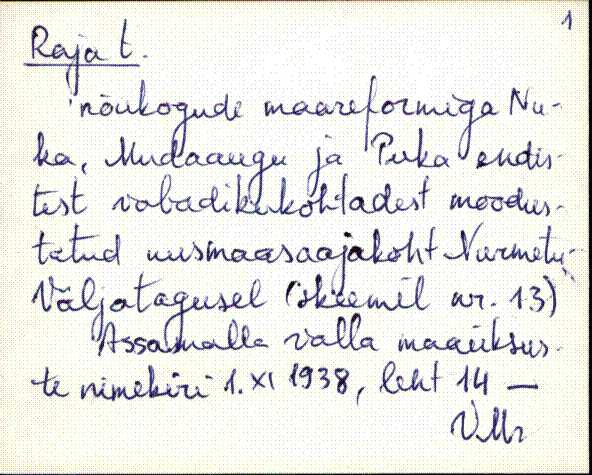 1
Raja t.
nõukogude maareformiga Nu-
ka, Mudaaugu ja Puka endis-
test vabadikukohtadest moodus-
tatud uusmaasaajakoht Nurmetu-
Väljatagusel (skeemil nr. 13)
Assamalla valla maaüksus-
te nimekiri 1. XI 1938, leht 14 —
V.Mr